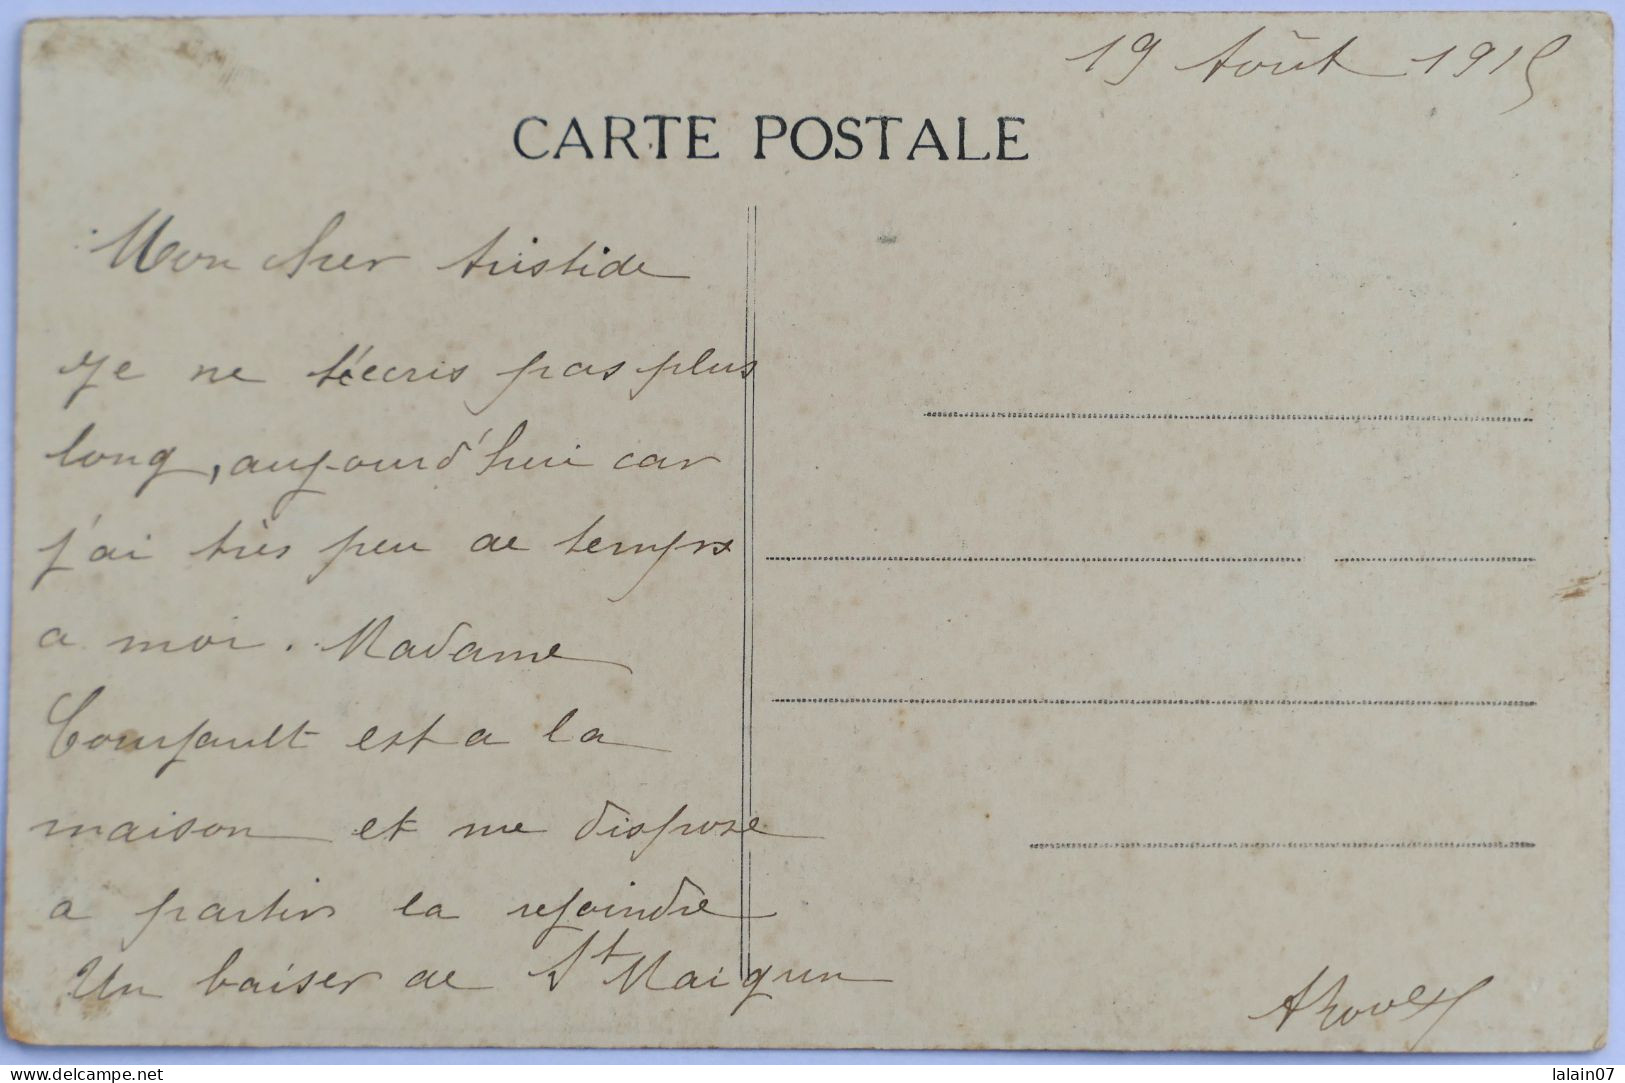 19 Août 1915
CARTE POSTALE
Mon cher Aristide
Je ne t'écris pas plus
long, aujourd'hui car
j'ai très peu de temps
a moi. Madame
est a la
maison et me dispose
a partir la rejoindre
Un baiser de St
www.delcampe.net
lalain07